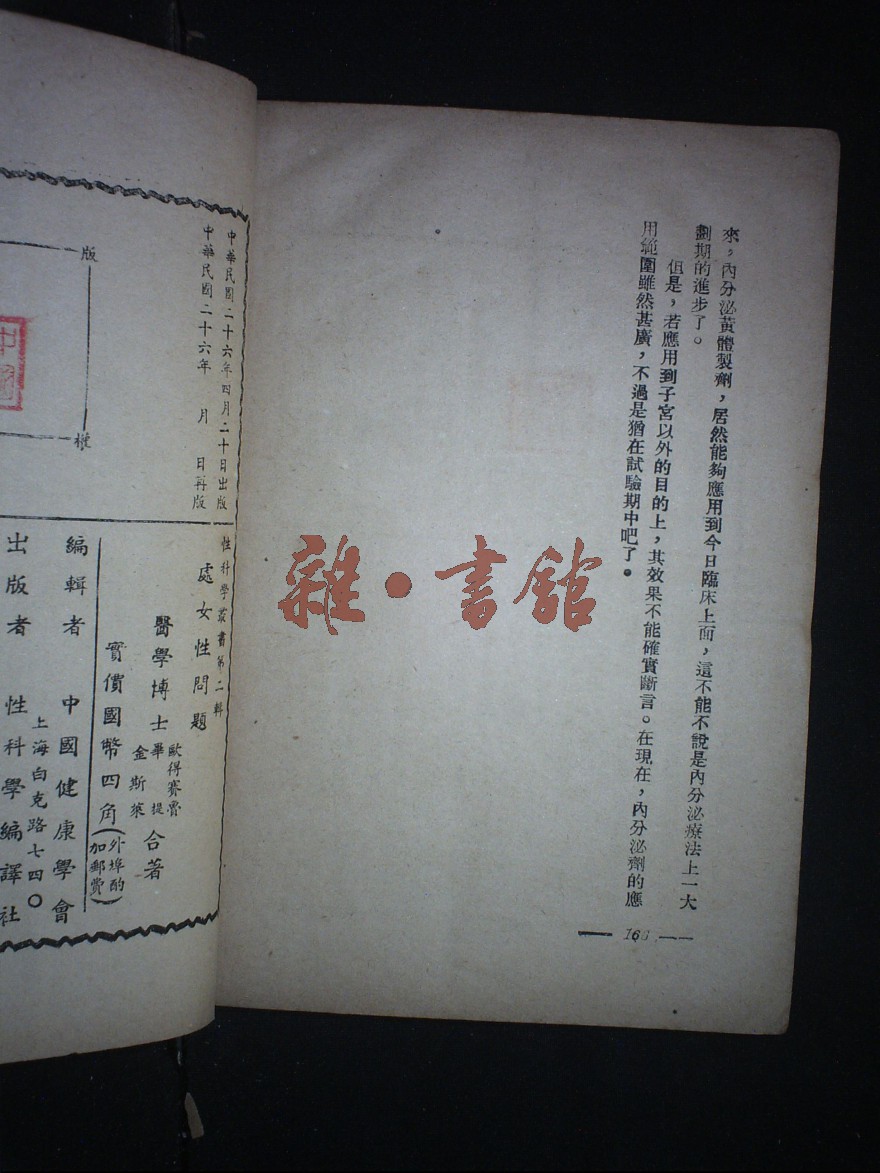 來，內分泌黃體製劑，居然能夠應用到今日臨床上面，這不能不說是內分泌療法上一大
劃期的進步了。
但是，若應用到子宮以外的目的上，其效果不能確實斷言。在現在，內分泌劑的應
用範圍雖然甚廣，不過是猶在試驗期中吧了。
雜・書館
中華民國二十六年四月二十日出版
中華民國二十六年　月　日再版
版
權
性科學叢書第二輯
處女性問題
醫學博士
歐得賽費
華提
金斯萊
合著
實價國幣四角
(外埠酌
加郵費)
編輯者　中國健康學會
上海白克路七四〇
出版者　性科學編譯社